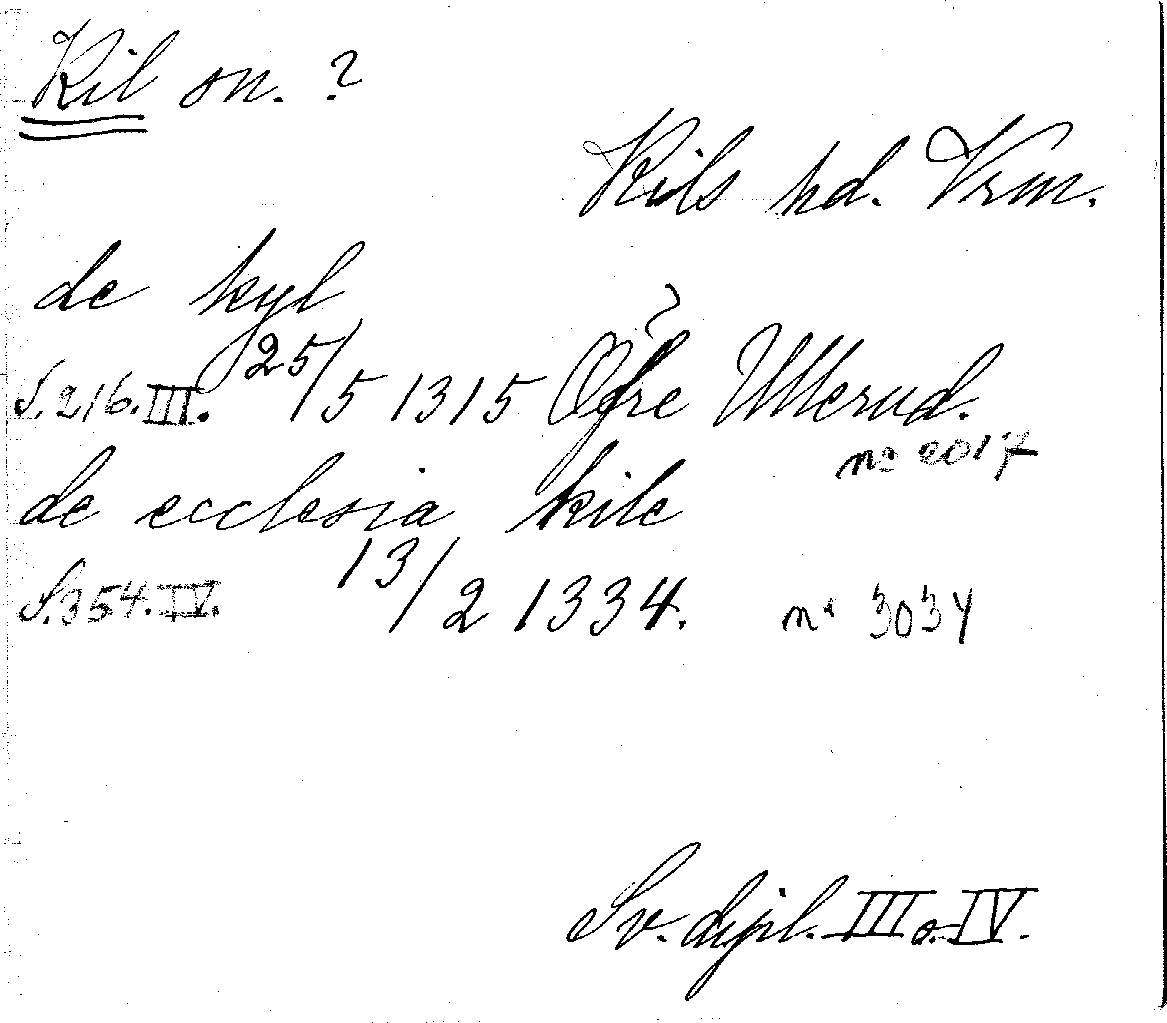 Kil sn. ?
Kils hd. Vrm.
de kyl
S. 216. III. 25/5 1315 Öfre Ullerud. ?
nº 2017
de ecclesia kile
S. 354. IV. 13/2 1334. nº 3034
Sv. dipl. III o. IV.